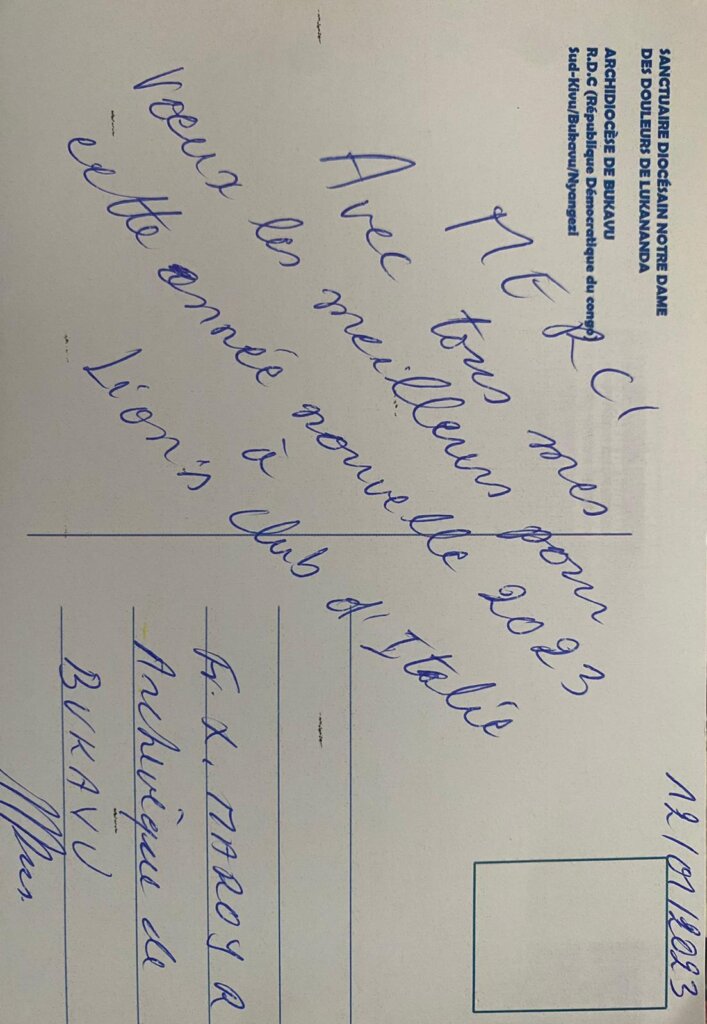 SANCTUAIRE DIOCÉSAIN NOTRE DAME
DES DOULEURS DE LUKANANDA
ARCHIDIOCÈSE DE BUKAVU
R.D.C (République Démocratique du congo)
Sud-Kivu/Bukavu/Nyangezi
12/01/2023
MERCI
Avec tous mes
voeux les meilleurs pour
cette année nouvelle 2023
à
Lion's club d'Italie
Fr. X. MAROY R
Archevêque de
BUKAVU